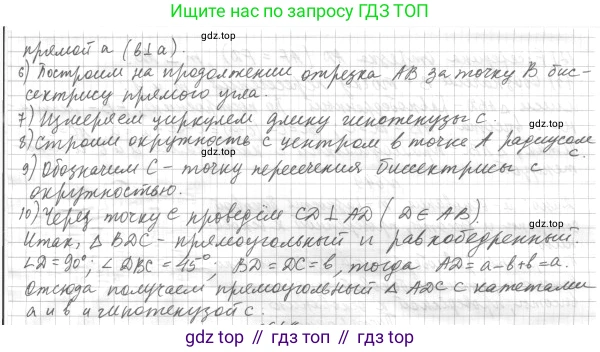 Ищите нас по запросу ГДЗ ТОП
gdz.top
gdz.top
прямой a (b⊥a).
6) Построим на продолжении отрезка AB за точку B бис-
сектрису прямого угла.
7) Измеряем циркулем длину гипотенузы c.
8) Строим окружность с центром в точке A радиусом
c.
9) Обозначим C - точку пересечения биссектрисы с
окружностью.
10) Через точку C проведём CD⊥AD (D∈AB).
Итак, △BDC - прямоугольный и равнобедренный.
∠D=90°; ∠DBC=45°; BD=DC=b, тогда AD=a-b+b=a.
Отсюда получаем прямоугольный △ADC с катетами
a и b и гипотенузой c.
gdz.top
gdz.top
gdz top // gdz top // gdz top // gdz top